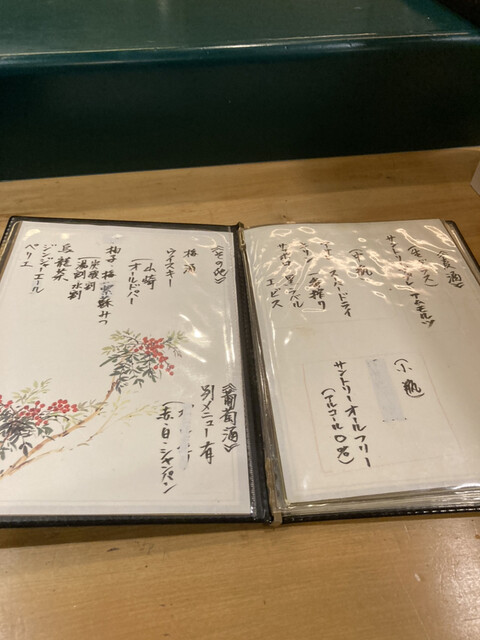 (生グラス)
サントリー
モルツ
(中瓶)
スーパードライ
キリン 一番搾り
サッポロ 黒ラベル
エビス
(小瓶)
サントリーオールフリー
(アルコール0%)
《その他》
梅酒
ウイスキー
(オールドパー
山崎
柚子 梅 紫蘇 みつ
炭酸割
湯割 水割
烏龍茶
ジンジャーエール
ペリエ
《葡萄酒》
別メニュー有
(赤・白・シャンパン)